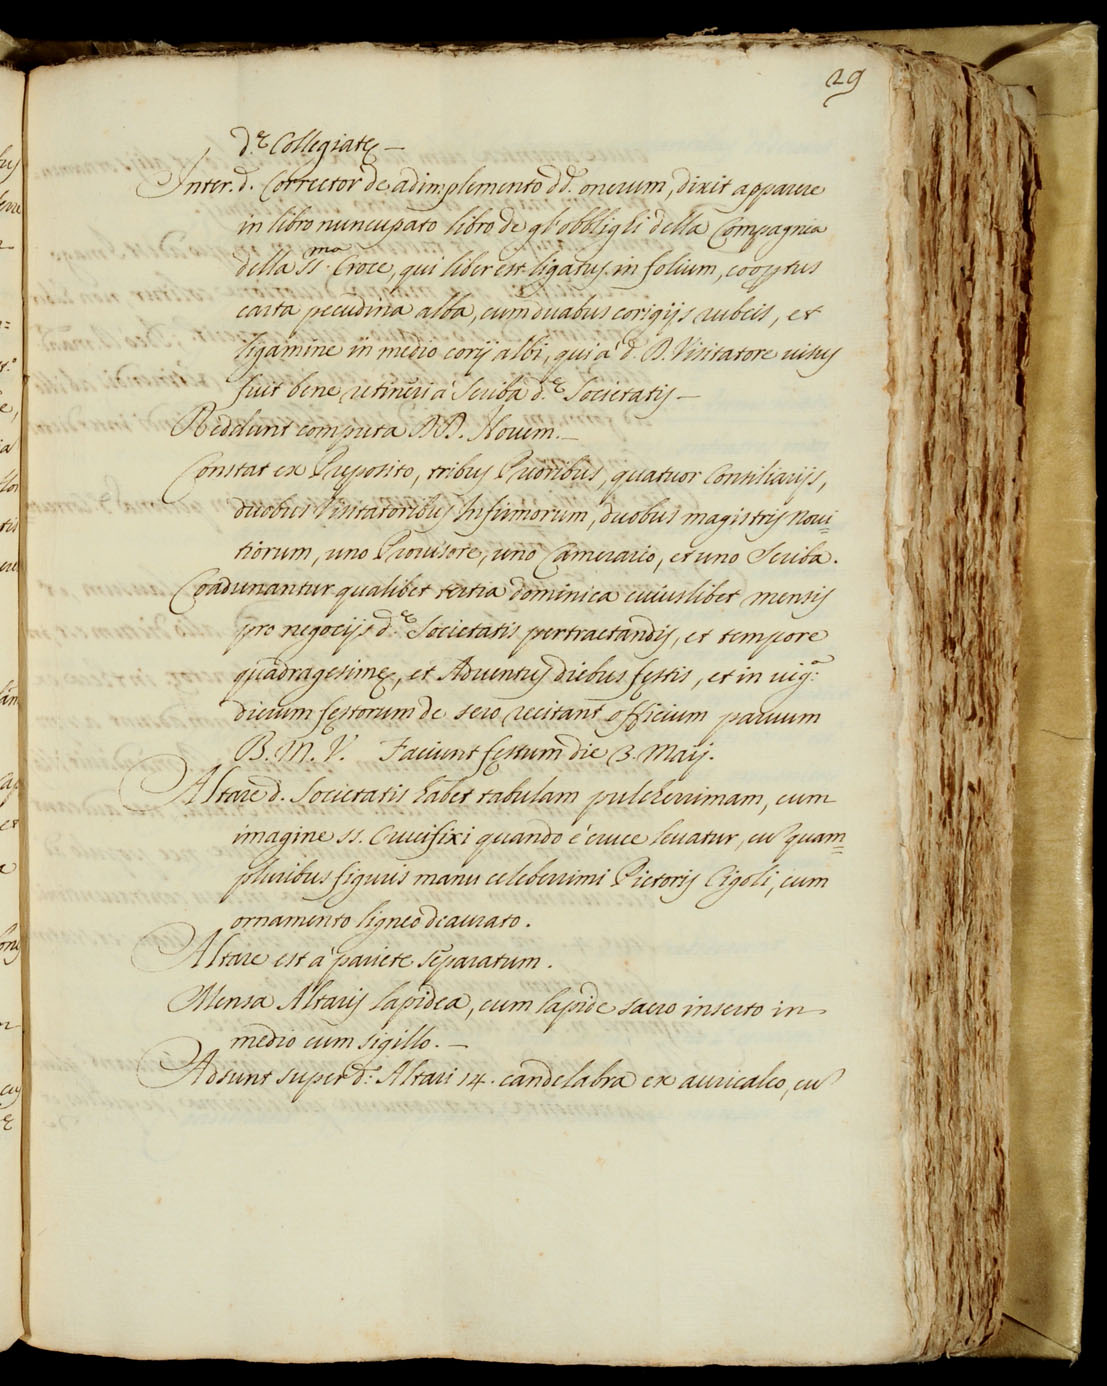 29
d.ę Collegiatę —
Inter. d. Corrector de adimplemento dd. onerum, dixit apparere
in libro nuncupato libro de gl'obblighi della Compagnia
della SS.ma Croce, qui liber est ligatus in folium, cooptus
carta pecudina alba, cum duabus corigijs rubeis, et
ligamine in medio corij albi, qui à d. D. Visitatore visus
fuit bene retineri à Scriba d.ę Societatis —
Reddunt computa DD. Novem. —
Constat ex Pręposito, tribus Prioribus, quatuor Consiliarijs,
duobus Visitatoribus Infirmorum, duobus magistris Novi=
tiorum, uno Provisore, uno Camerario, et uno Scriba.
Coadunantur qualibet tertia dominica cuiuslibet mensis
pro negocijs d.ę Societatis pertractandis, et tempore
quadragesimę, et Adventus diebus festis, et in vig.a
dierum festorum de sero recitant officium parvum
B. M. V. Faciunt festum die 3. Maij.
Altare d. Societatis habet tabulam pulcherrimam, cum
imagine SS. Crucifixi quando è cruce levatur, cu quam=
pluribus figuris manu celeberrimi Pictoris Cigoli, cum
ornamento ligneo deaurato.
Altare est à pariete separatum.
Mensa Altaris lapidea, cum lapide sacro inserto in
medio cum sigillo. —
Adsunt super d.o Altari 14. candelabra ex auricalco, cu